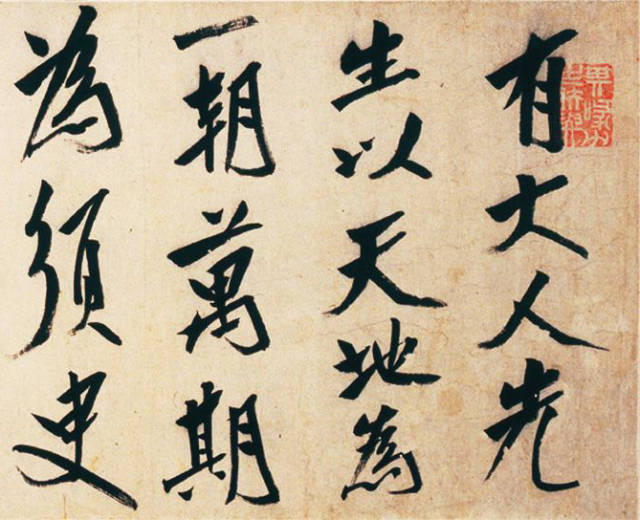 有大人先
生以天地為
一朝萬期
為須臾